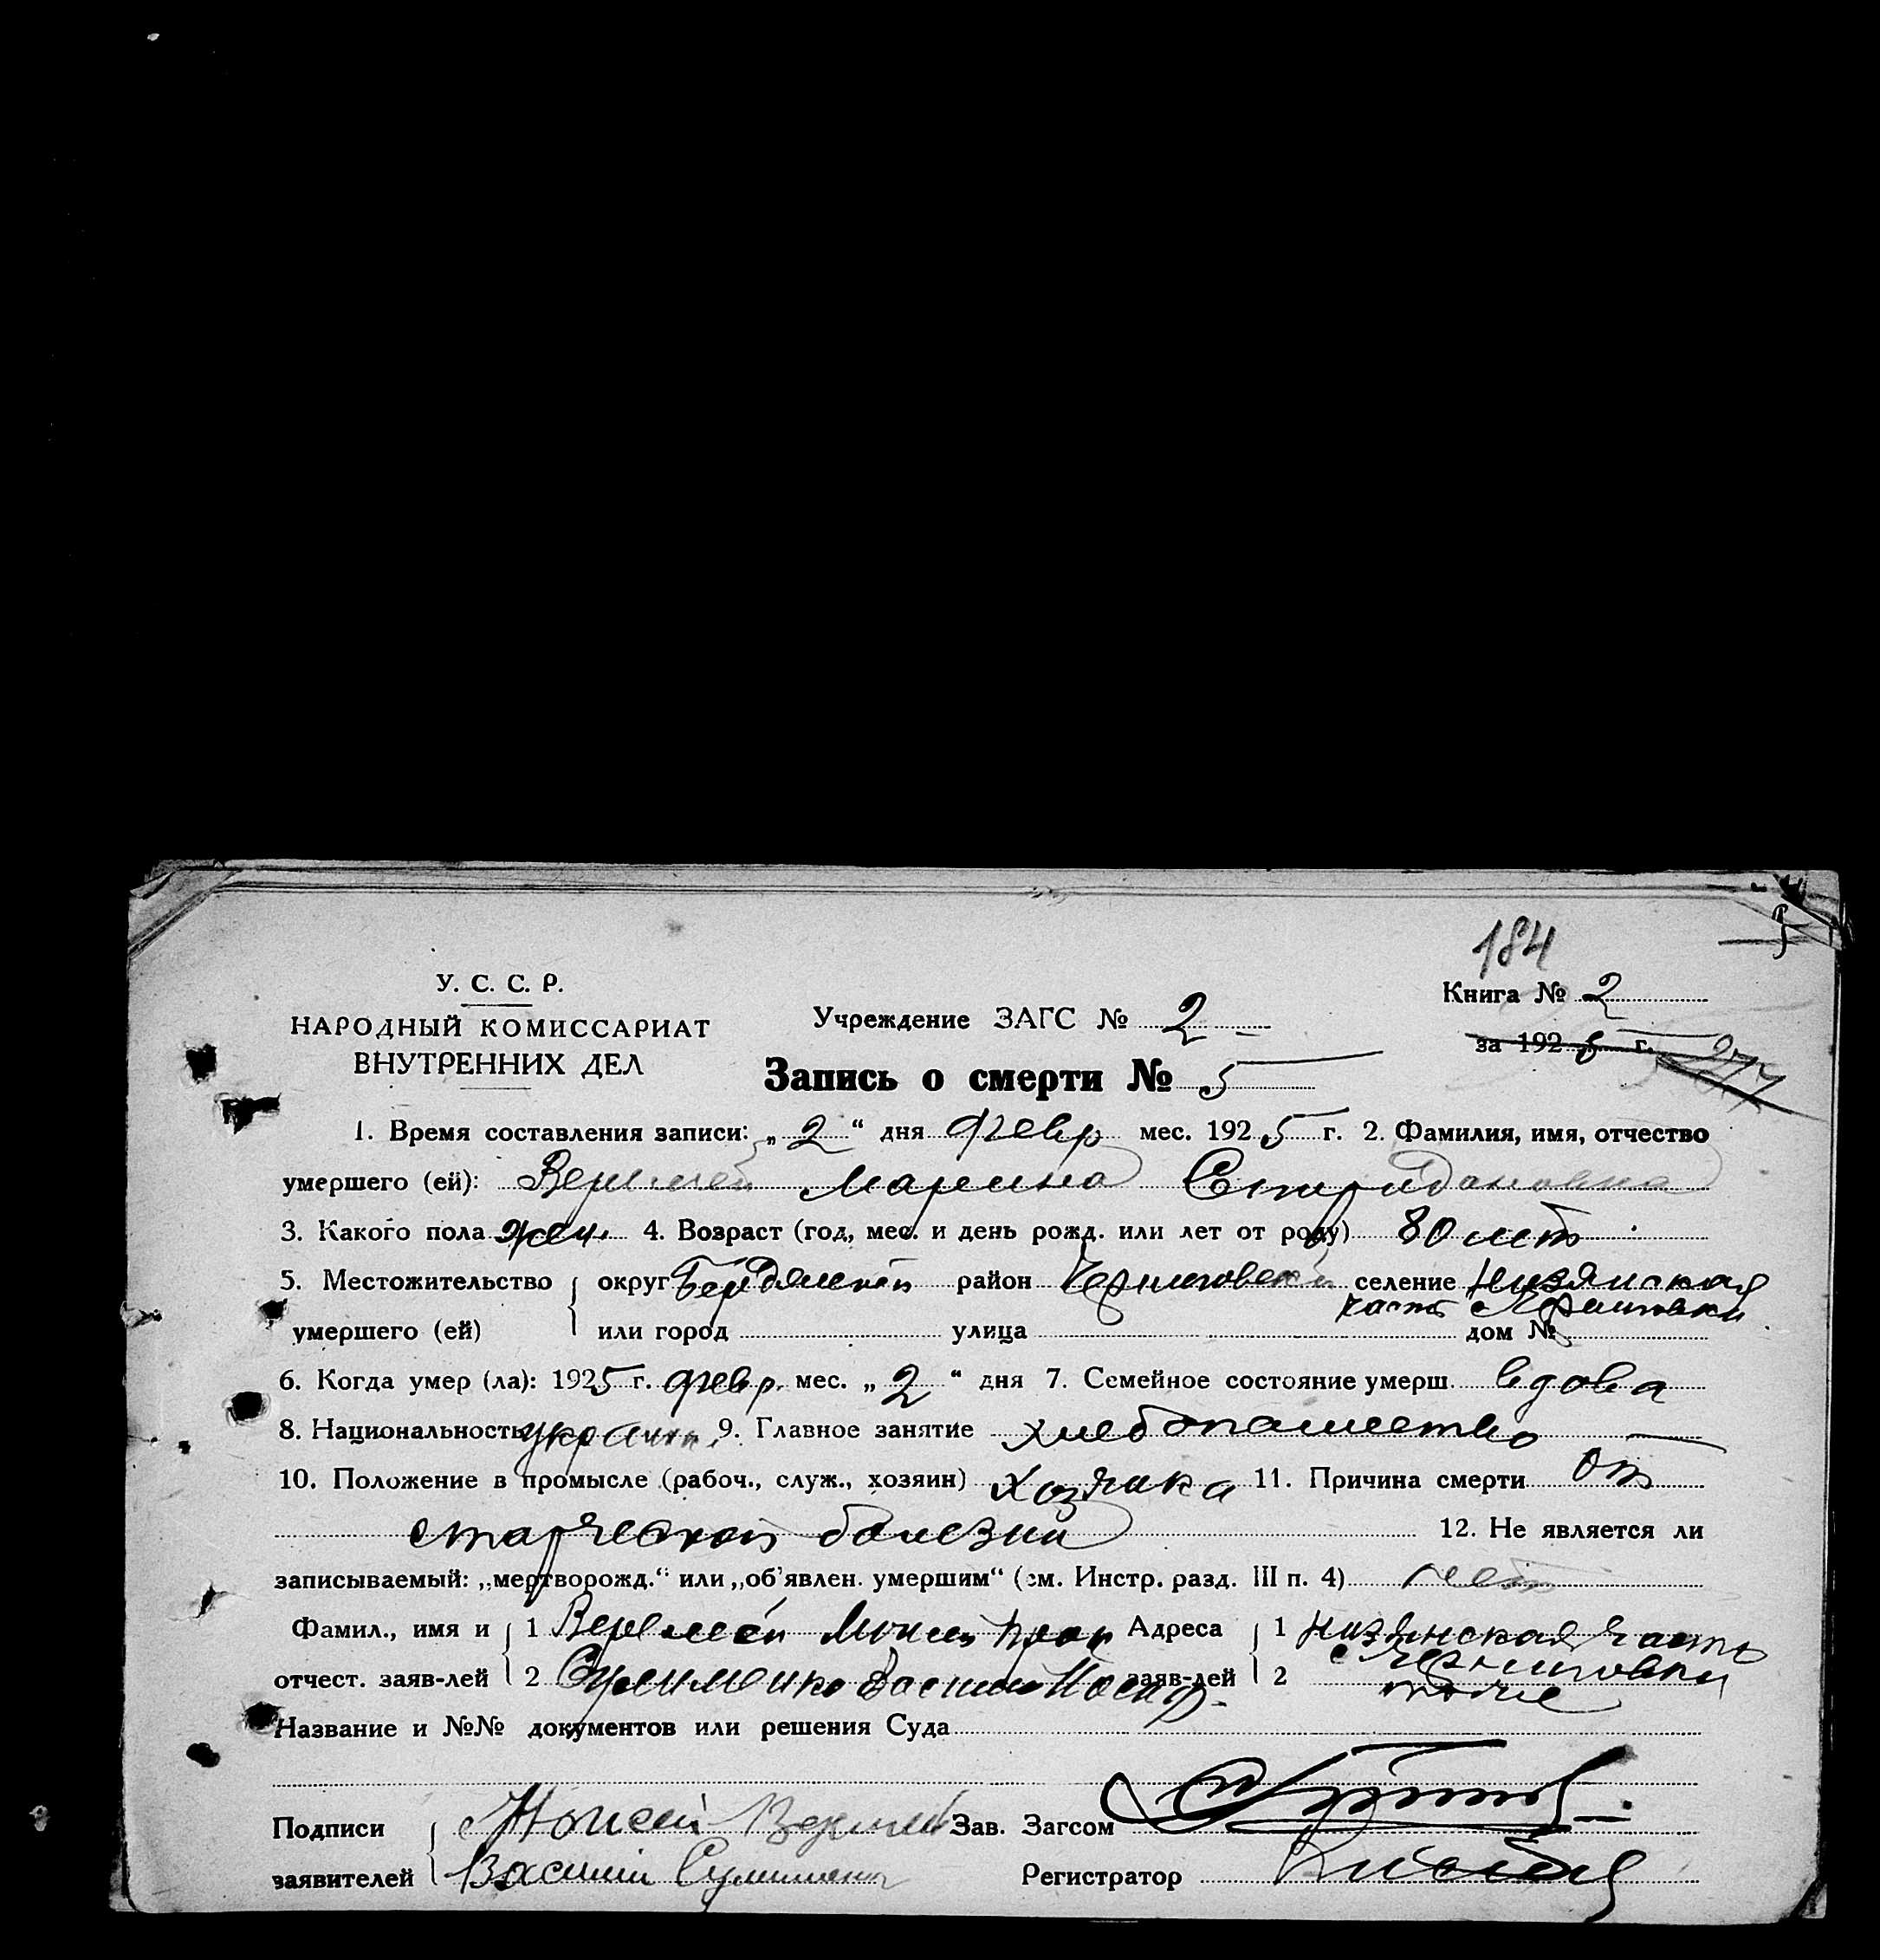 184
У. С. С. Р.
НАРОДНЫЙ КОМИССАРИАТ
ВНУТРЕННИХ ДЕЛ
Учреждение ЗАГС № 2
Книга № 2
за 192 5 г.
Запись о смерти № 5
1. Время составления записи: „ 2 “ дня февр мес. 192 5 г. 2. Фамилия, имя, отчество
умершего (ей): Веремей Марина Спиридоновна
3. Какого пола жен. 4. Возраст (год, мес. и день рожд. или лет от роду) 80 лет
5. Местожительство округ Бердянск район Черниговский селение Низянская
часть с Черниговки
умершего (ей) или город улица дом №
6. Когда умер (ла): 1925 г. февр. мес. „ 2 “ дня 7. Семейное состояние умерш. вдова
8. Национальность украин. 9. Главное занятие хлебопашество
10. Положение в промысле (рабоч., служ., хозяин) хозяйка 11. Причина смерти от
старческой болезни 12. Не является ли
записываемый: „мертворожд.“ или „об'явлен. умершим“ (см. Инстр. разд. III п. 4) нет
Фамил., имя и 1 Веремей Моисей Адреса 1 Низянская часть
с Черниговки
отчест. заяв-лей 2 Василий заяв-лей 2 тоже
Название и №№ документов или решения Суда
Подписи Моисей Веремей Зав. Загсом
заявителей Василий Регистратор